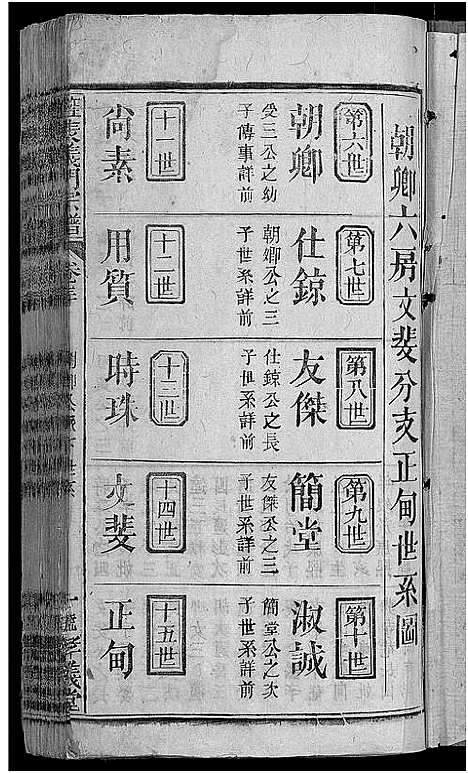 朝卿六房文斐分支正甸世系圖
第六世
朝卿
受三公之幼
子傳事詳前
第七世
仕鍄
朝卿公之三
子世系詳前
第八世
友傑
仕鍄公之長
子世系詳前
第九世
簡堂
友傑公之三
子世系詳前
第十世
淑誠
簡堂公之次
子世系詳前
十一世
尙素
十二世
用質
十三世
時珠
十四世
文斐
十五世
正甸
義門宗譜
卷
義堂